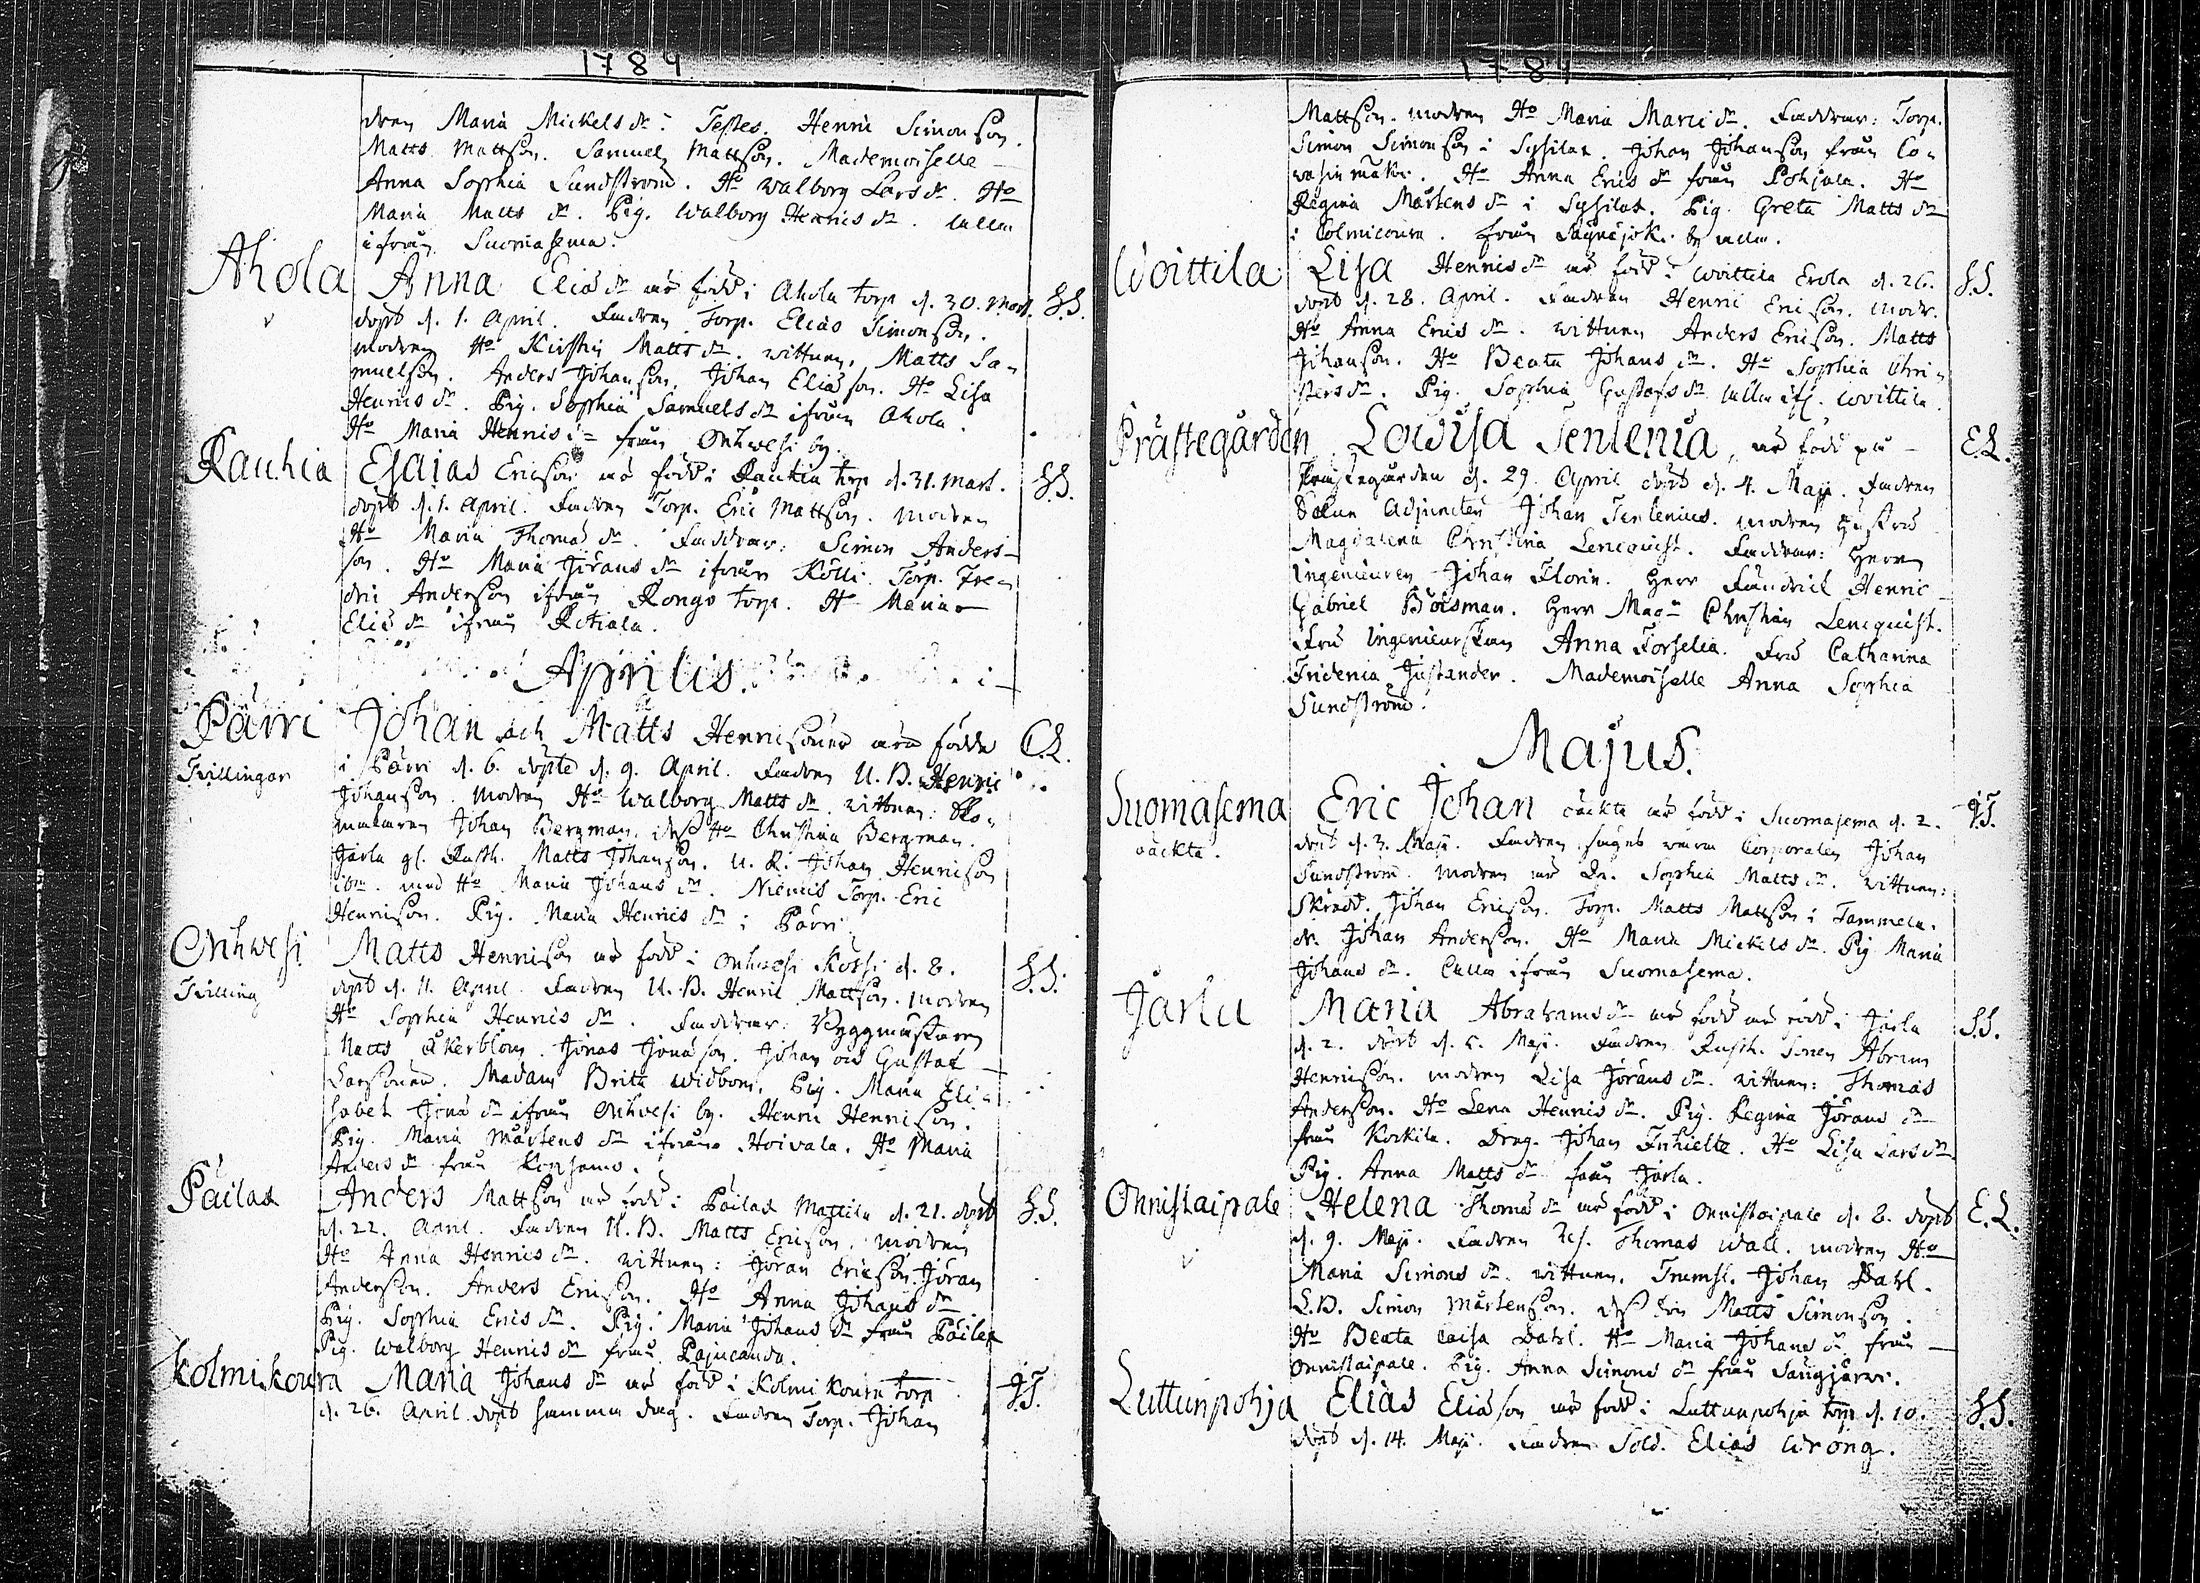 1789
dren Maria Mickels dr. Testes. Henric Simonson.
Matts Mattson. Samuel Mattson. Mademoiselle
Anna Sophia Sundström. Ho Walborg Lars dr. Ho
Maria Matts dr. Pig. Walborg Henrics dr. alla
ifrån Suomasema.
Ahola Anna Elias dr är född i Ahola torp d. 30. Mart. S.S.
döpt d. 1. April. Fadren Torp. Elias Simonson.
modren Ho Kirstin Matts dr. wittnen, Matts Sa-
muelson. Anders Johanson. Johan Eliason. Ho Lisa
Henrics dr. Pig. Sophia Samuels dr ifrån Ahola.
Ho Maria Henrics från Onkwesi by.
Rauhia Esaias Ericson är född i Rauhia torp d. 31. Mart. S.S.
döpt d. 1. April. Fadren Torp. Eric Mattson. modren
Ho Maria Thomas dr. Faddrar: Simon Anders-
son. Ho Maria Jörans dr ifrån Kölli. Torp. Fre-
dric Anderson ifrån Rongo torp. Ho Maria
Elias dr ifrån Rotiala.
Aprilis.
Pärri Johan och Matts Henricsöner äro födde C.L.
Tvillingar i Pärri d. 6. döpte d. 9. April. Fadren U. B. Henric
Johanson. Modren Ho Walborg Matts dr. wittnen: Sko-
makaren Johan Bergman. dess Ho Christina Bergman.
Jarla gl. Rusth. Matts Johanson. U. R. Johan Henricson
ibm. med Ho Maria Johans dr. Niemis Torp. Eric
Henricson. Pig. Maria Henrics dr i Pärri.
Onkwesi Matts Henricson är född i Onkwesi Kossi d. 8. S.S.
Tvilling döpt d. 11. April. Fadren U. B. Henric Mattson. modren
Ho Sophia Henrics dr. Faddrar: Byggmästaren
Matts Åkerblom. Jonas Jonason. Johan och Gustaf
Larsöner. Madam Brita Widbom. Pig. Maria Eli-
sabet Jonas dr ifrån Onkwesi by. Henric Henricson.
Pig. Maria Mårtens dr ifrån Hoivala. Ho Maria
Anders dr från Konsamo.
Päilax Anders Mattson är född i Päilax Mattila d. 21. döpt S.S.
d. 22. April. Fadren U. B. Matts Ericson. modren
Ho Anna Henrics dr. wittnen: Jöran Ericson. Jöran
Anderson. Anders Ericson. Ho Anna Johans dr
Pig. Sophia Erics dr. Pig. Maria Johans dr från Päilax
Pig. Walborg Henrics dr från Pajucanda.
Kolmikoura Maria Johans dr är född i Kolmikoura torp J.T.
d. 26. April döpt samma dag. Fadren Torp. Johan
1789
Mattson. modren Ho Maria Marci dr. Faddrar: Torp.
Simon Simonson i Syssilax. Johan Johanson från Co-
wasinmäki. Ho Anna Erics dr från Pohjala. Ho
Regina Mårtens dr i Syssilax. Pig. Greta Matts dr
i Colmicoura. från by alla.
Woittila Lisa Henrics dr är född i Woittila Erola d. 26. S.S.
döpt d. 28. April. Fadren Henric Ericson. modr.
Ho Anna Erics dr. wittnen Anders Ericson. Matts
Johanson. Ho Beata Johans dr. Ho Sophia Chri-
sters dr. Pig. Sophia Gustafs dr alla ifr. Woittila.
Prästegården Lovisa Tenlenia, är född på E.L.
Prästegården d. 29. April döpt d. 4. Maji. Fadren
Sokne Adjuncten Johan Tenlenius. modren Hustru
Magdalena Christina Lencquist. Faddrar: Herr
Ingenieuren Johan Florin. Herr Fändrick Henric
Gabriel Boisman. Herr Magr Christian Lencquist.
Fru Ingenieurskan Anna Forselia. Fru Catharina
Fridenia Justander. Mademoiselle Anna Sophia
Sundström.
Majus.
Suomasema Eric Johan oäckta är född i Suomasema d. 2. J.T.
oäckta. döpt d. 3. Maji. Fadren säges vara Corporalen Johan
Sundström. Modren är Sophia Matts dr. wittnen:
Skrädd. Johan Ericson. Torp. Matts Mattson i Tammela.
dr. Johan Anderson. Ho Maria Mickels dr. Pig Maria
Johans dr. alla ifrån Suomasema.
Jarla Maria Abrahams dr är född är född i Jarla S.S.
d. 2. döpt d. 5. Maji. Fadren Rusth. Sonen Abram
Henricson. modren Lisa Jörans dr. wittnen: Thomas
Anderson. Ho Lena Henrics dr. Pig. Regina Jörans dr
från Korkila. Drag. Johan Frihielte. Ho Lisa Lars dr.
Pig. Anna Matts dr från Jarla.
Onnistaipale Helena Thomas dr är född i Onnistaipale d. 8. döpt E.L.
d. 9. Maji. Fadren Thomas Wall. modren Ho
Maria Simons dr. wittnen. Trumsl. Johan Dahl.
L.B. Simon Mårtenson. dess son Matts Simonson.
Ho Beata Caisa Dahl. Ho Maria Johans dr från
Onnistaipale. Pig. Anna Simons dr från Saugjärwi.
Luttunpohja Elias Eliason är född i Luttunpohja torp d. 10. S.S.
döpt d. 14. Maji. Fadren Sold. Elias Wrång.